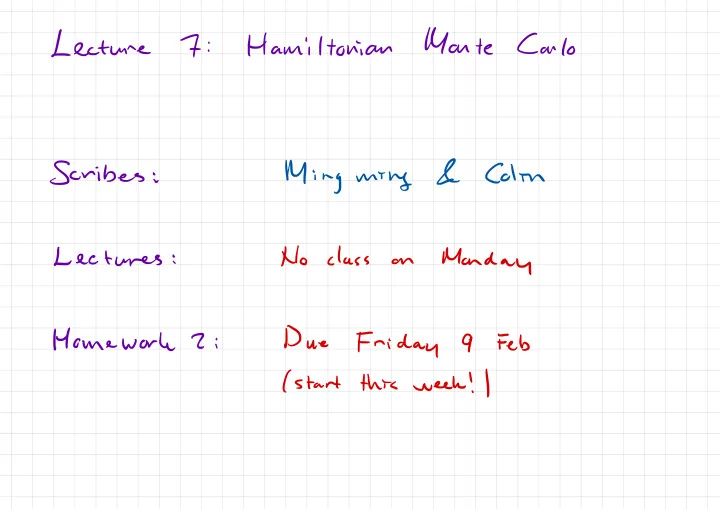 Lecture 7: Hamiltonian Monte Carlo
Scribes: Mingming & Colin
Lectures: No class on Monday
Homework 2: Due Friday 9 Feb
(start this week!)